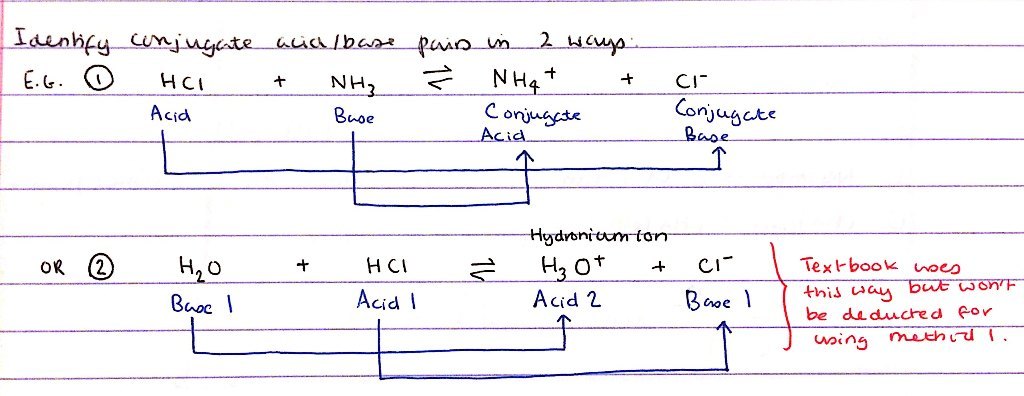 Identify conjugate acid/base pairs in 2 ways:
E.G. ① HCl + NH₃ ⇌ NH₄⁺ + Cl⁻
Acid Base Conjugate Acid Conjugate Base
Hydronium ion
OR ② H₂O + HCl ⇌ H₃O⁺ + Cl⁻
Base 1 Acid 1 Acid 2 Base 1
Textbook uses
this way but won't
be deducted for
using method 1.